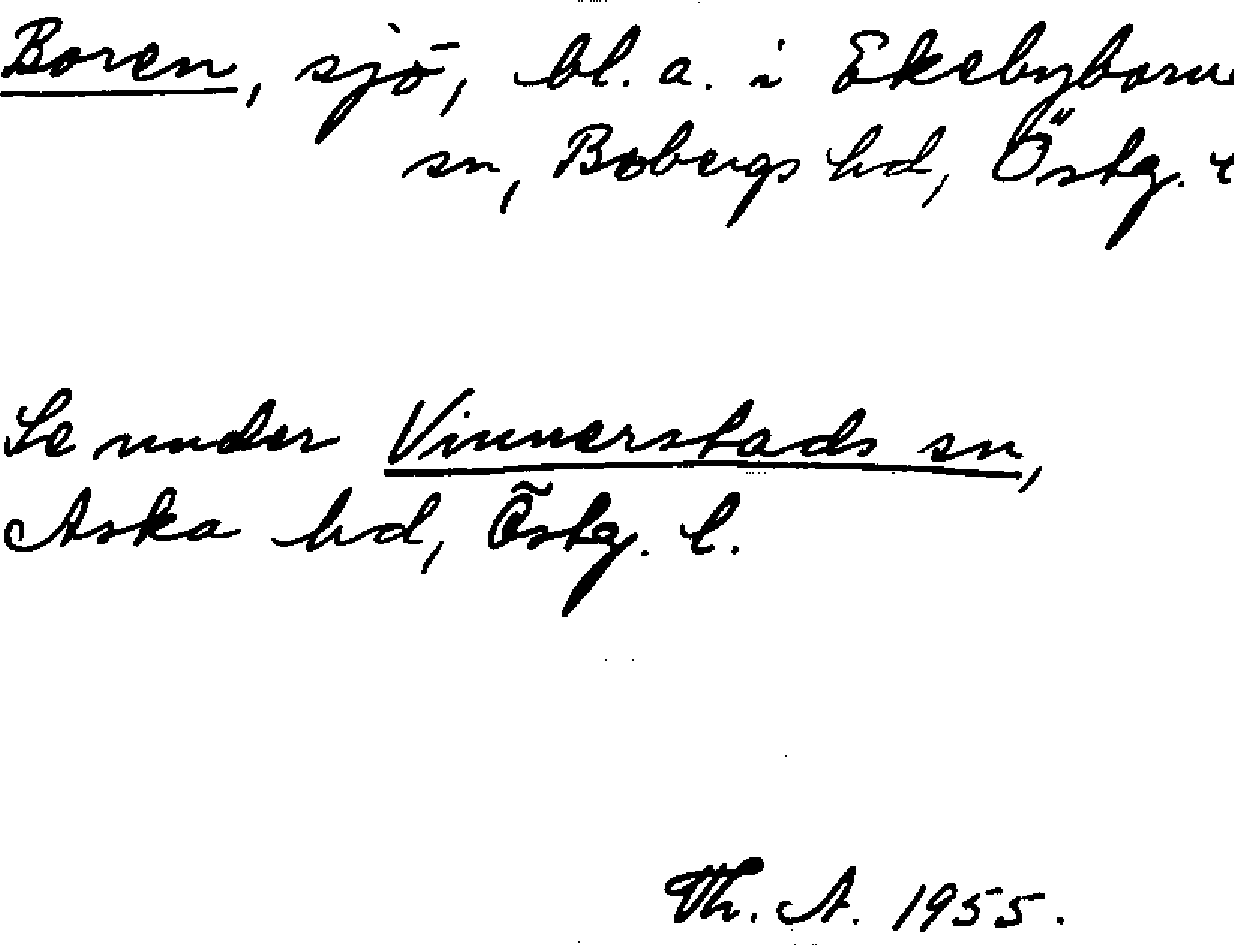 Boren, sjö, bl. a. i Ekebyborna
sn, Bobergs hd, Östg. l
Se under Vinnerstads sn,
Aska hd, Östg. l.
Th. A. 1955.